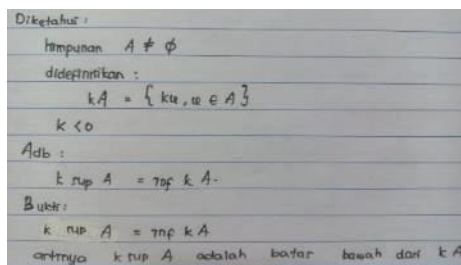 Diketahui :
himpunan A ≠ ϕ
didefinisikan :
kA = { ku, u ∈ A }
k < 0
Adb :
k sup A = inf k A.
Bukti :
k sup A = inf k A
artinya k sup A adalah batas bawah dari k A